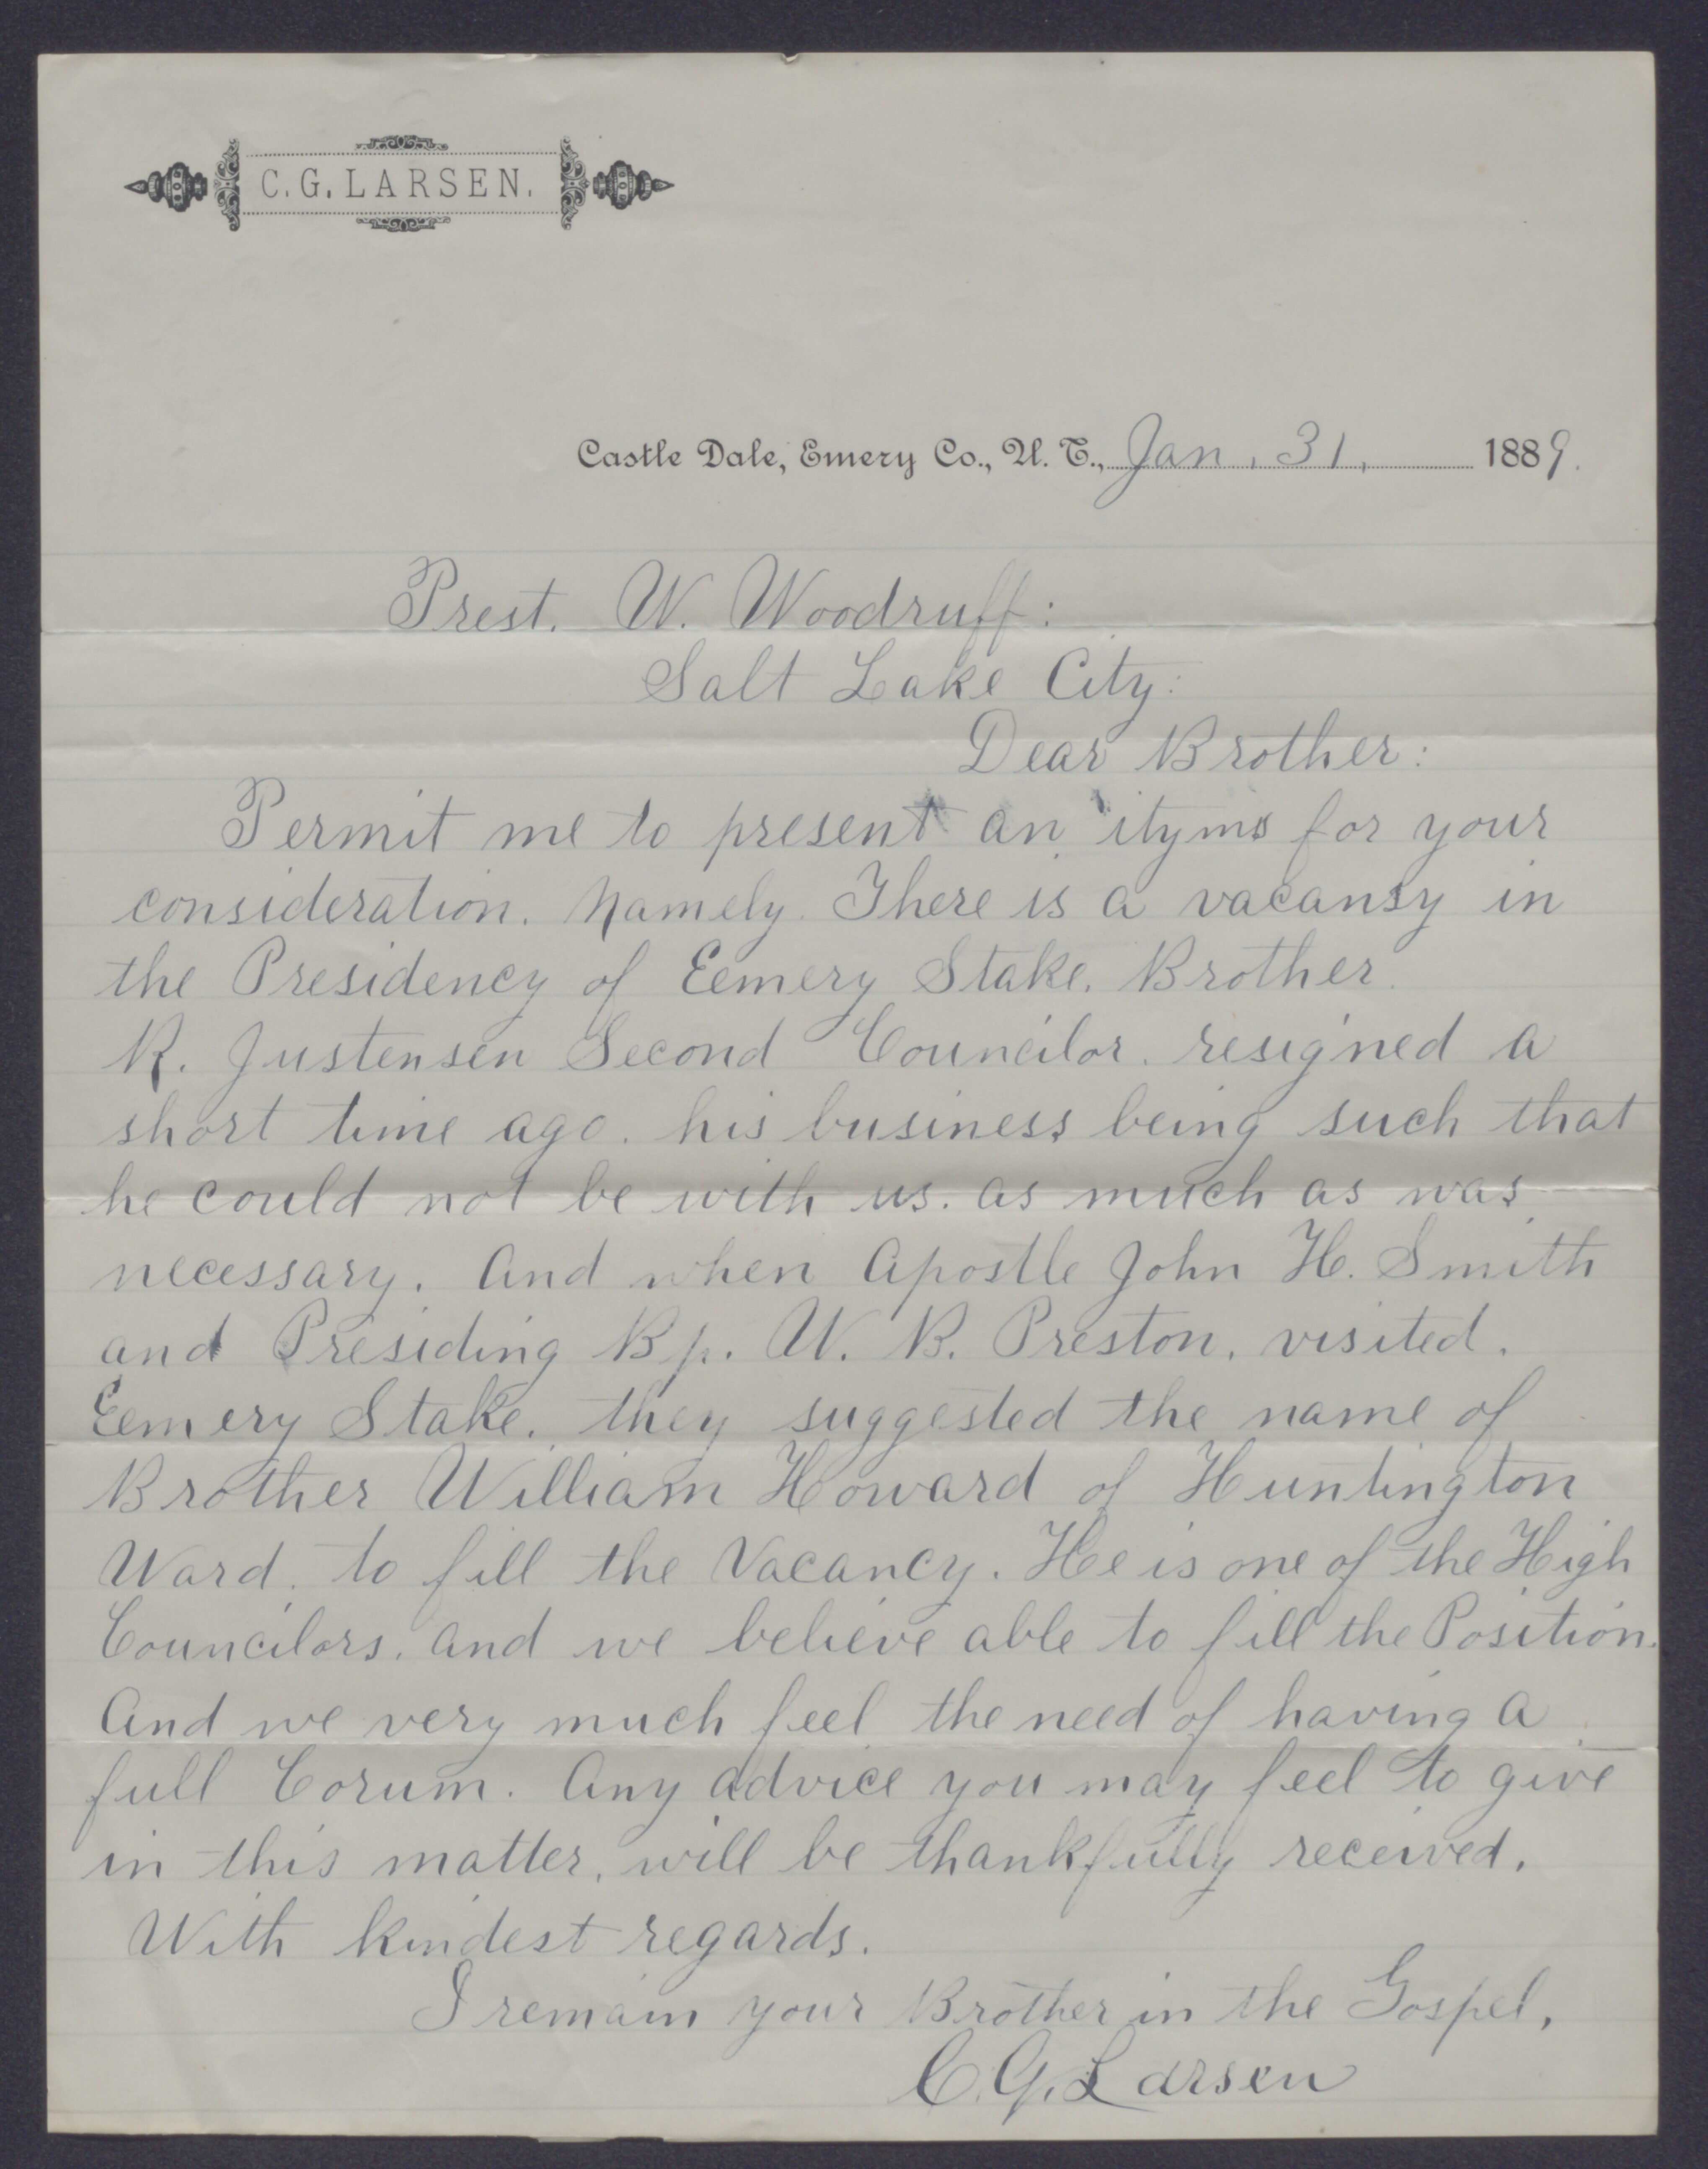 C.G. LARSEN.
Castle Dale, Emery Co., U. T., Jan. 31, 1889.
Prest. W. Woodruff:
Salt Lake City:
Dear Brother:
Permit me to present an ityms for your
consideration. Namely. There is a vacansy in
the Presidency of Eemery Stake. Brother.
R. Justensen Second Councilor. resigned a
short time ago. his business being such that
he could not be with us. as much as was
necessary. And when Apostle John H. Smith
and Presiding Bp. W. B. Preston. visited.
Eemery Stake. they suggested the name of
Brother William Howard of Huntington
Ward. to fill the Vacancy. He is one of the High
Councilors. and we believe able to fill the Position.
And we very much feel the need of having a
full Corum. Any advice you may feel to give
in this matter, will be thankfully received.
With kindest regards.
I remain your Brother in the Gospel,
C. G. Larsen